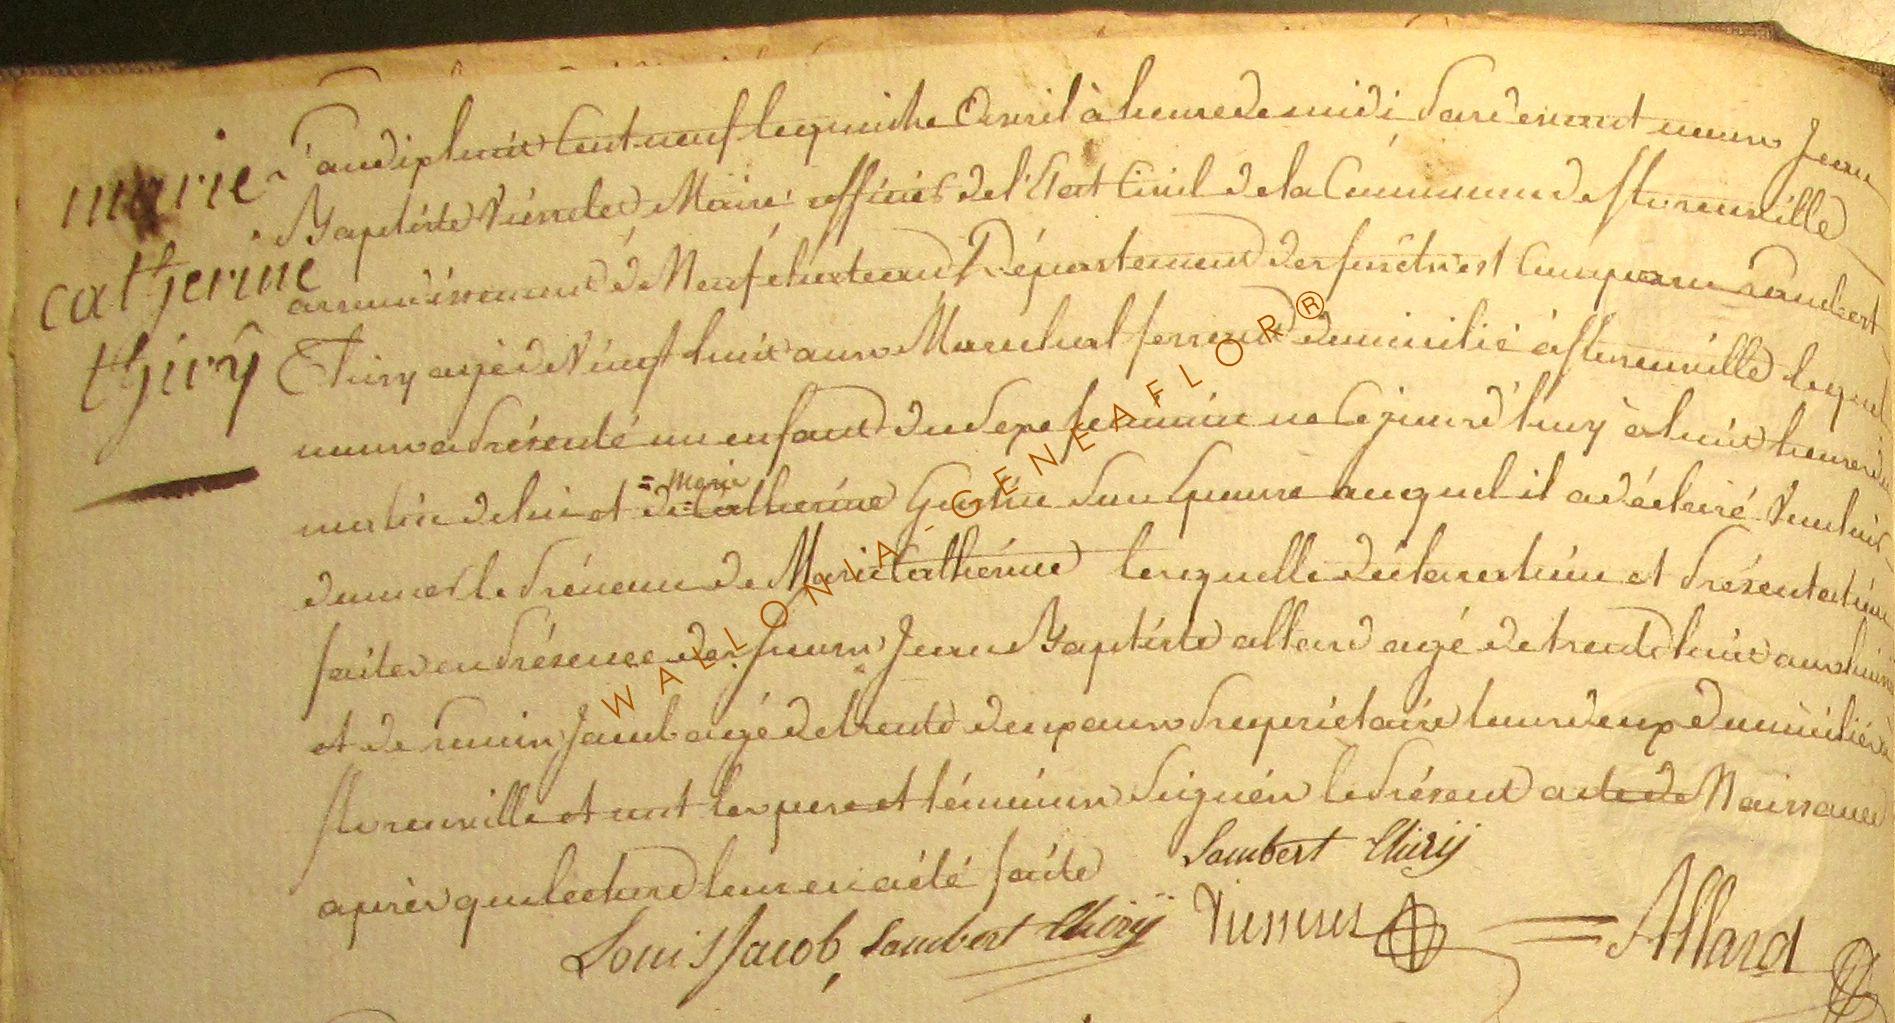 marie
catherine
thiry
L'an dix huit Cent neuf le quinze Avril à heure de midi Pardevant nous Jean
Baptiste Maire officier de l'Etat Civil de la Commune de florenville
arrondissement de Neufchateau Département des forêts est Comparu Lambert
Thiry agé de Vingt huit ans Marechal ferrant domicilié à florenville lequel
nous a Présenté un enfant du Sexe feminin né Ce jourd'huy à huit heures du
matin de lui et de = Marie = Catherine Son Epouse auquel il a déclaré Vouloir
donner le Prénom de Marie Catherine lesquelles déclaration et Présentation
faites en Présence des Jean Baptiste allard agé de trente huit ans
et de Louis Jacob agé de trente deux ans Propriétaire tous deux domiciliés à
florenville et ont les pere et témoins Signés le Présent acte de Naissance
après que lecture leur en a été faite
Lambert Thiry
Louis Jacob, Lambert Thiry = Allard
WALLONIA - GENEAFLOR ®